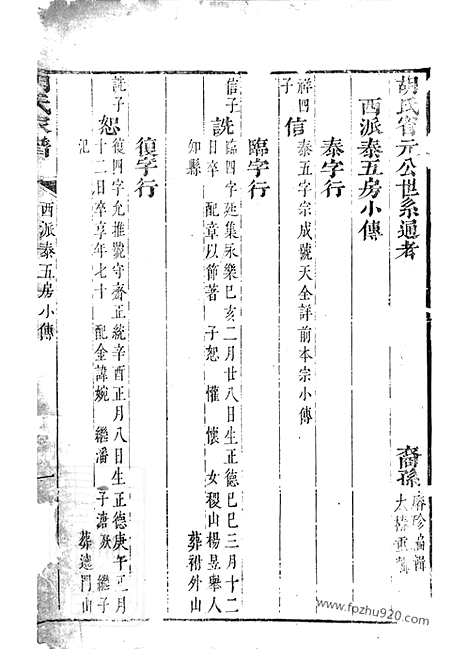 胡氏宵元公世系通考
裔孫 啓珍 編輯
大椿 重輯
西派泰五房小傳
泰字行
祥四子 信 泰五字宗成號天全詳前本宗小傳
臨字行
信子 詵 臨四字延集永樂己亥二月廿八日生正德己巳三月十二
日卒 配章以節著 子恕 懽 懷 女稷山楊昱舉人
知縣 葬柎外山
復字行
詵子 恕 復四字允推號守齋正統辛酉正月八日生正德庚午正月
十二日卒享年七十 配金諱婉 繼潘 子溏 繼子
汜 葬遠門山
胡氏家譜
西派泰五房小傳
一
www.fpzhu920.com